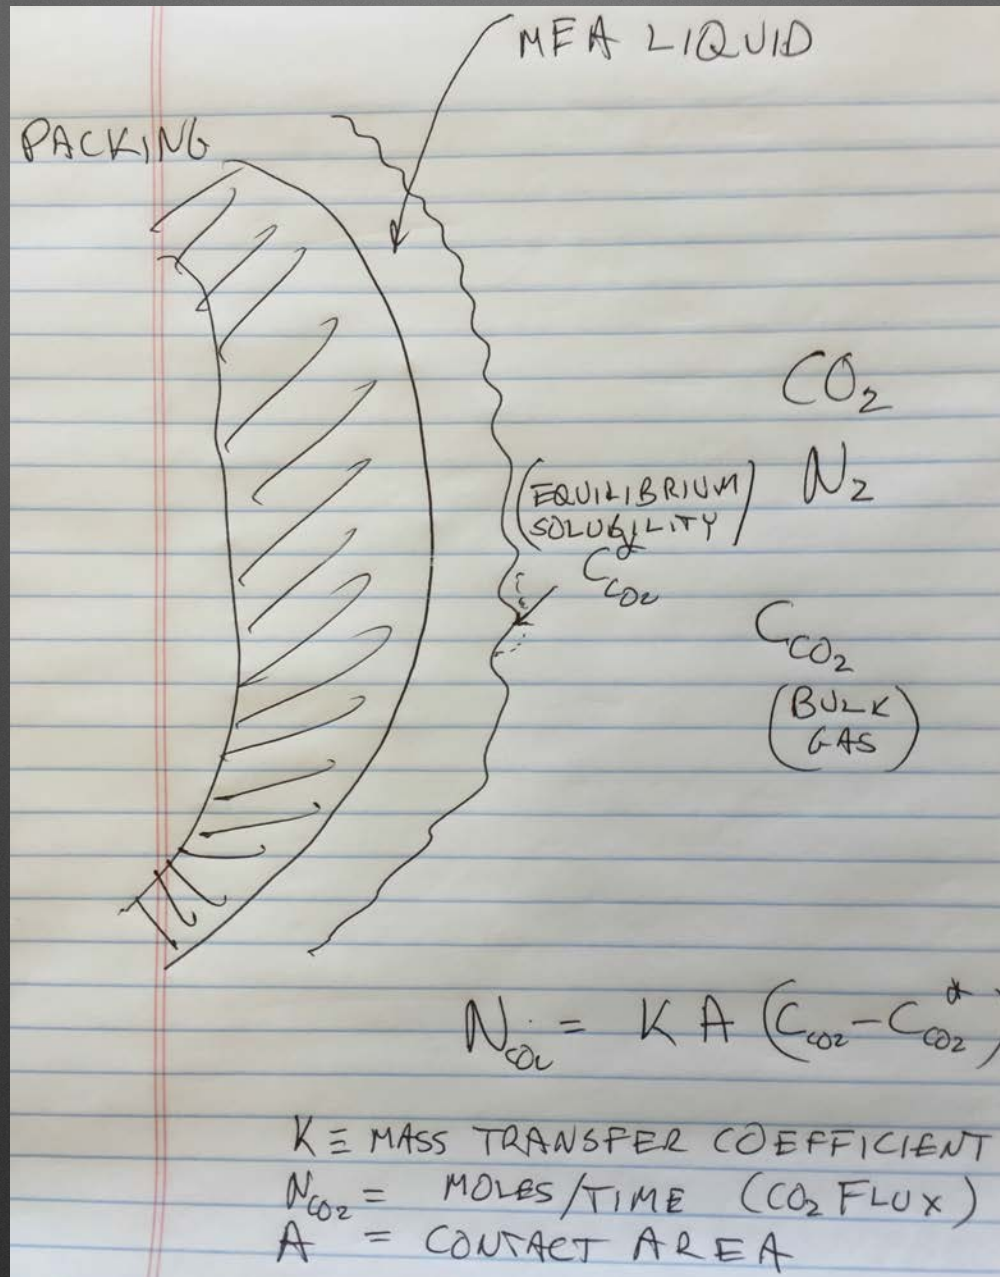 MEA LIQUID
PACKING
CO₂
N₂
(EQUILIBRIUM
SOLUBILITY)
C*CO₂
CCO₂
(BULK
GAS)
NCO₂ = K A (CCO₂ - C*CO₂)
K ≡ MASS TRANSFER COEFFICIENT
NCO₂ = MOLES/TIME (CO₂ FLUX)
A = CONTACT AREA